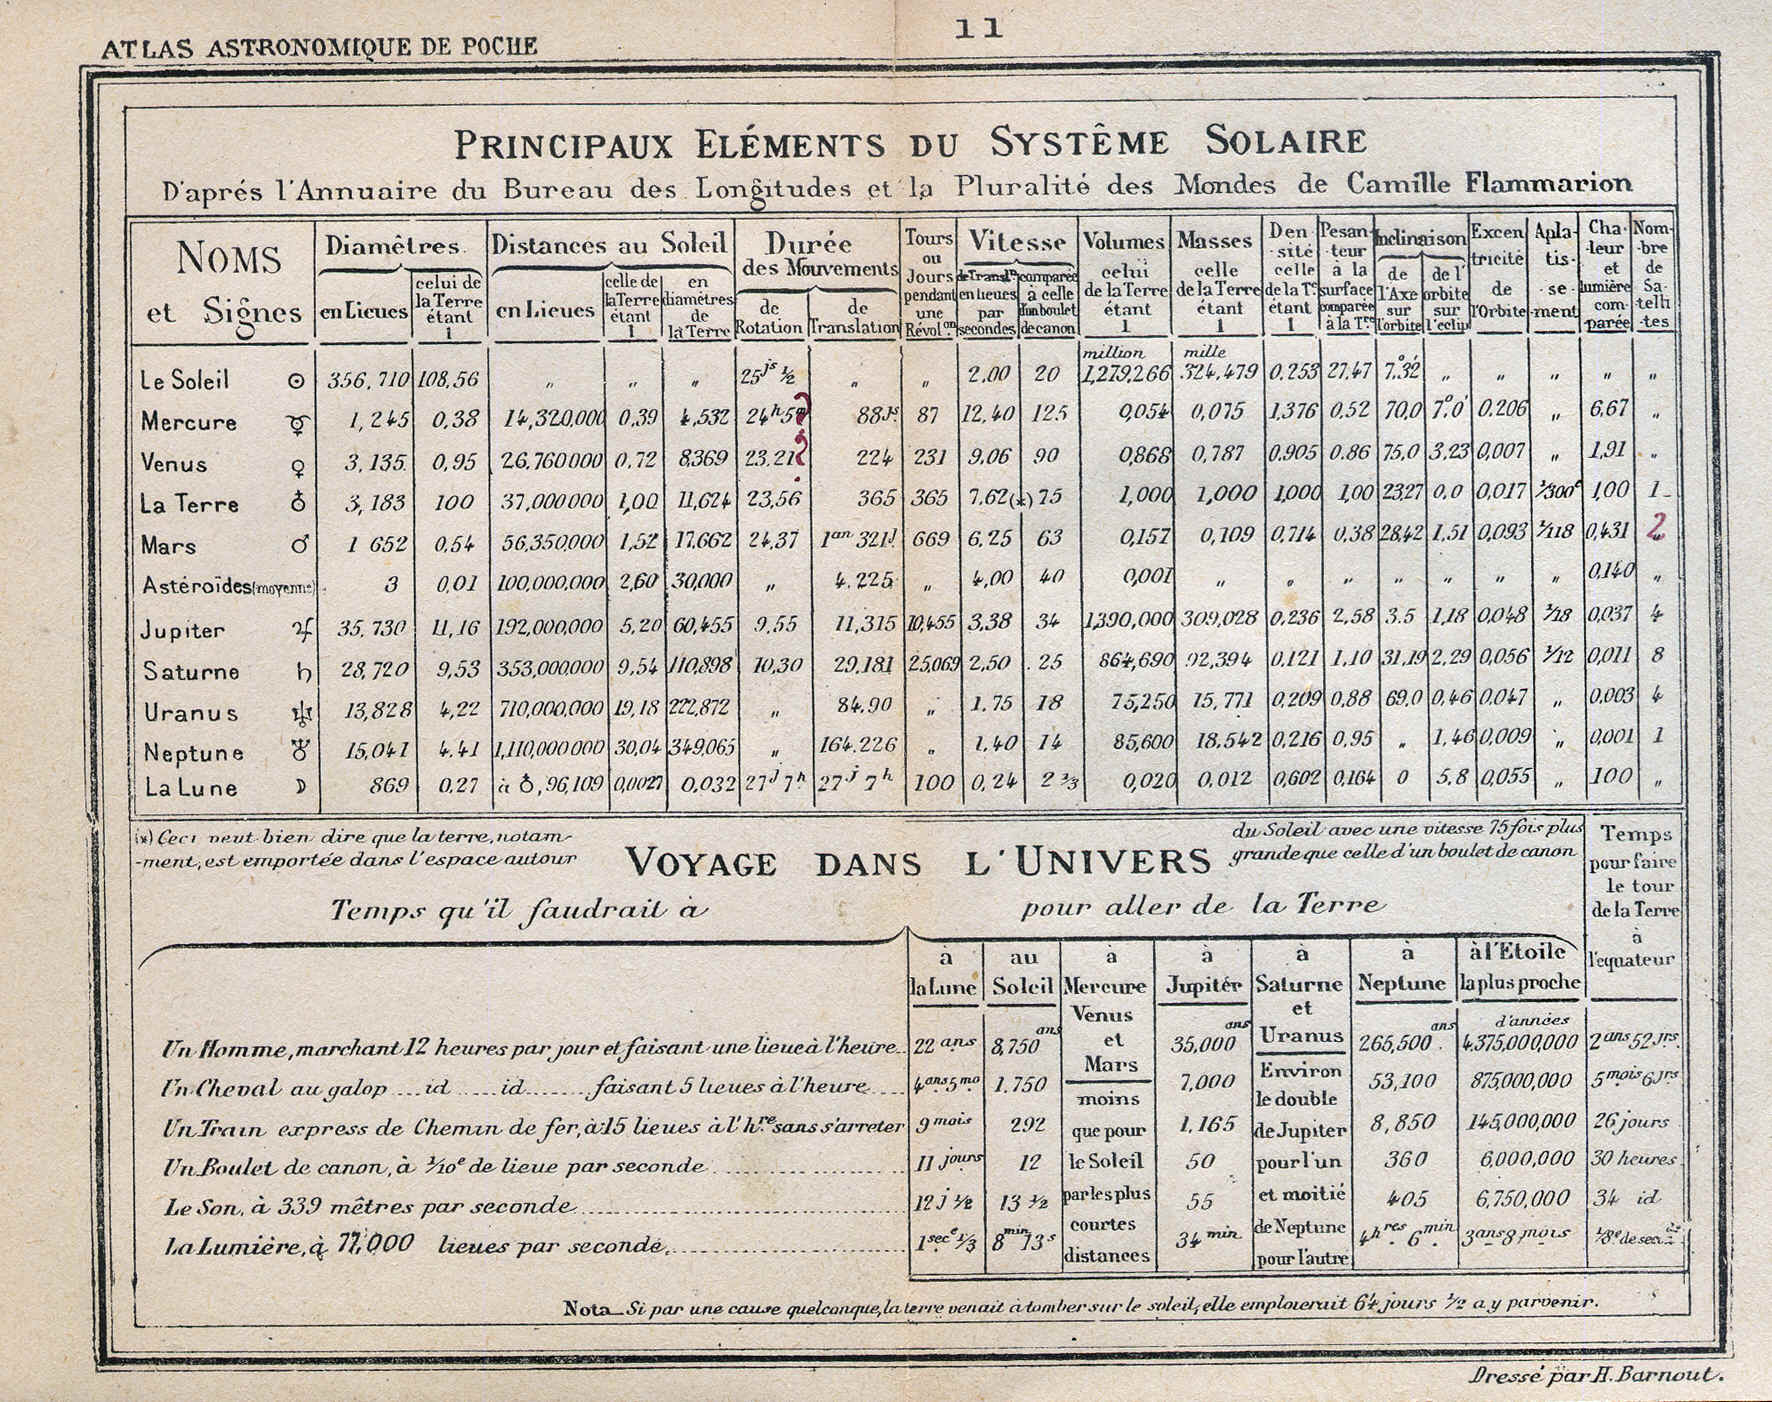 11
ATLAS ASTRONOMIQUE DE POCHE
PRINCIPAUX ELÉMENTS DU SYSTÊME SOLAIRE
D'aprés l'Annuaire du Bureau des Longitudes et la Pluralité des Mondes de Camille Flammarion
NOMS et Signes
Diamêtres en Lieues celui de la Terre étant 1
Distances au Soleil en Lieues celle de la Terre étant 1 en diamètres de la Terre
Durée des Mouvements de Rotation de Translation
Tours ou Jours pendant une Révol.on
Vitesse de Transl.n en lieues par secondes comparée à celle d'un boulet de canon
Volumes celui de la Terre étant 1
Masses celle de la Terre étant 1
Den-sité celle de la T.e étant 1
Pesan-teur à la surface comparée à la T.re
Inclinaison de l'Axe sur l'orbite de l'orbite sur l'eclip.
Excentricité de l'Orbite
Apla-tis-se-ment
Cha-leur et lumière com-parée
Nom-bre de Sa-telli-tes
million mille
Le Soleil ☉ 356,710 108,56 " " " 25js ½ " " 2,00 20 1,279,266 324,479 0,253 27,47 7°32' " " " " "
Mercure ☿ 1,245 0,38 14,320,000 0,39 4,532 24h5m 88js 87 12,40 125 0,054 0,075 1,376 0,52 70,0 7°0' 0,206 " 6,67 "
Venus ♀ 3,135 0,95 26,760000 0,72 8,369 23,21 224 231 9,06 90 0,868 0,787 0,905 0.86 75,0 3,23 0,007 " 1,91 "
La Terre ♁ 3,183 100 37,000000 1,00 11,624 23,56 365 365 7,62(*) 75 1,000 1,000 1,000 1,00 23,27 0,0 0,017 1/300e 1,00 1
Mars ♂ 1 652 0,54 56,350,000 1,52 17,662 24,37 1an 321j 669 6,25 63 0,157 0,109 0,714 0,38 28,42 1,51 0,093 1/118 0,431 2
Astéroïdes (moyenne) 3 0,01 100,000,000 2,60 30,000 " 4.225 " 4,00 40 0,001 " " " " " " " 0,140 "
Jupiter ♃ 35,730 11,16 192,000,000 5,20 60,455 9,55 11,315 10,455 3,38 34 1,390,000 309,028 0,236 2,58 3.5 1,18 0,048 1/18 0,037 4
Saturne ♄ 28,720 9,53 353,000000 9,54 110,898 10,30 29,181 25,069 2,50 25 864,690 92,394 0,121 1,10 31,19 2,29 0,056 1/12 0,011 8
Uranus ♅ 13,828 4,22 710,000,000 19,18 222,872 " 84.90 " 1.75 18 75,250 15,771 0,209 0,88 69,0 0,46 0,047 " 0,003 4
Neptune 15,041 4.41 1,110000000 30,04 349,065 " 164.226 " 1,40 14 85,600 18,542 0,216 0,95 " 1,46 0,009 " 0,001 1
La Lune ☽ 869 0,27 à ♁, 96,109 0,0027 0,032 27j 7h 27j 7h 100 0,24 2 ⅓ 0,020 0,012 0,602 0,164 0 5,8 0,055 " 100 "
(*) Ceci veut bien dire que la terre, notam-
-ment, est emportée dans l'espace autour
du Soleil avec une vitesse 75 fois plus
grande que celle d'un boulet de canon
VOYAGE DANS L'UNIVERS
Temps qu'il faudrait à pour aller de la Terre
à la Lune
au Soleil
à Mercure Venus et Mars
à Jupitér
à Saturne et Uranus
à Neptune
à l'Etoile la plus proche
Temps pour faire le tour de la Terre à l'equateur
Un Homme, marchant 12 heures par jour et faisant une lieue à l'heure 22 ans 8,750 ans 35,000 ans 265,500 ans 4,375,000,000 d'années 2 ans 52 jrs
Un Cheval au galop id id faisant 5 lieues à l'heure 4ans 5mo 1.750 7,000 53,100 875,000,000 5mois 6jrs
Un Train express de Chemin de fer, à 15 lieues à l'h.re sans s'arreter 9 mois 292 1,165 8,850 145,000,000 26 jours
Un Boulet de canon, à 1/10e de lieue par seconde 11 jours 12 50 360 6,000,000 30 heures
Le Son, à 339 mêtres par seconde 12 j ½ 13 ½ 55 405 6,750,000 34 id
La Lumière, à 77,000 lieues par seconde, 1sec ⅓ 8min 13s 34 min 4hres 6min 3ans 8 mois 1/8e de sec.
moins que pour le Soleil par les plus courtes distances
Environ le double de Jupiter pour l'un et moitié de Neptune pour l'autre
Nota_ Si par une cause quelconque, la terre venait à tomber sur le soleil, elle emploierait 64 jours ½ a y parvenir.
Dressé par H. Barnout.